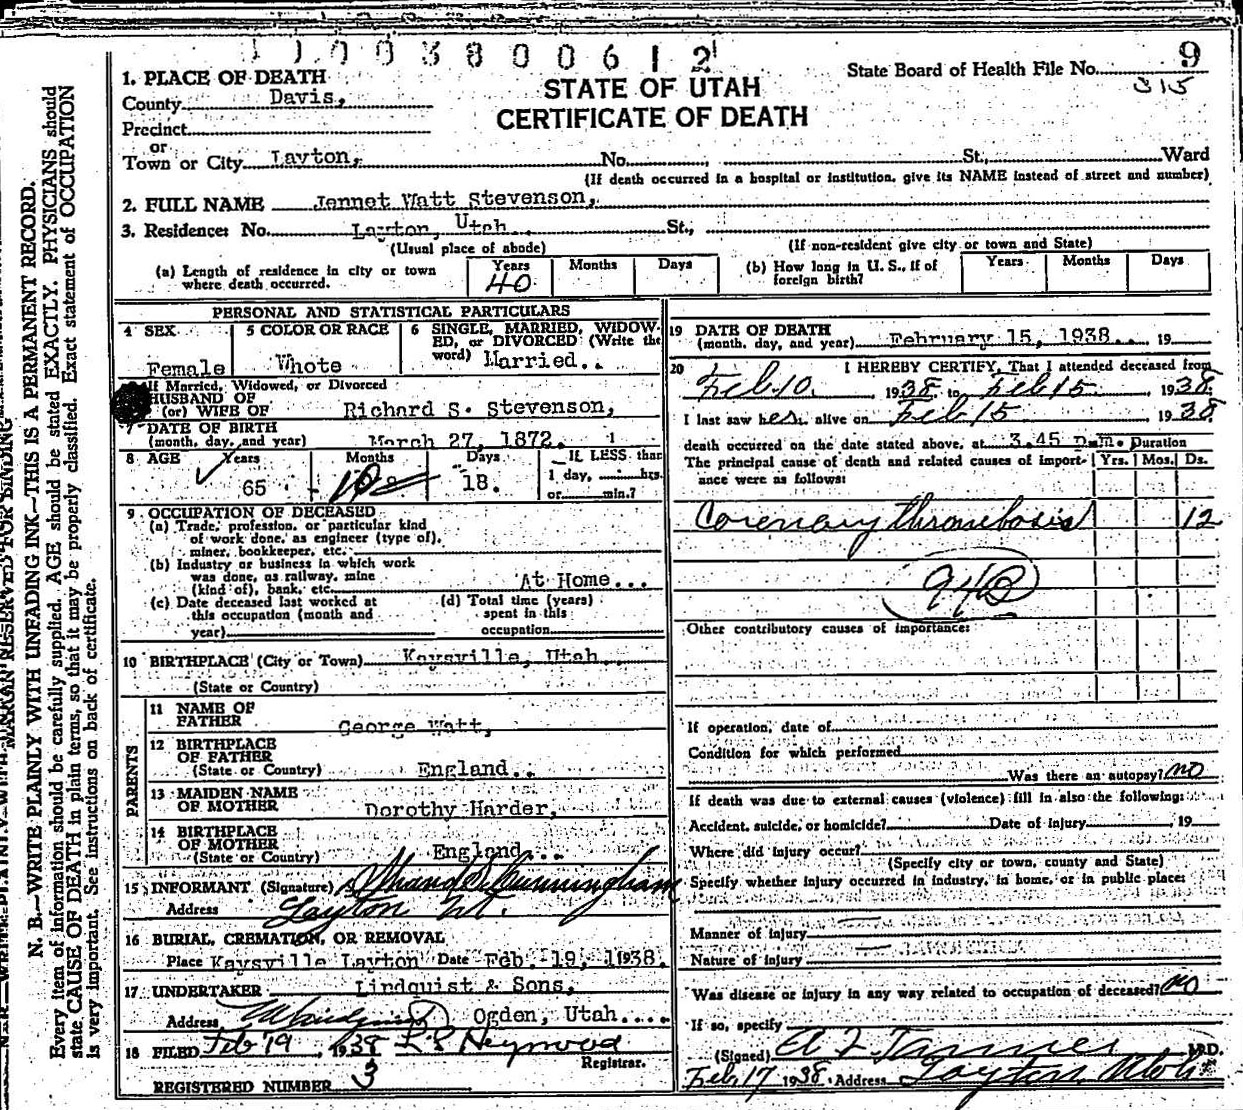 1100380061 2
9
1. PLACE OF DEATH
STATE OF UTAH
State Board of Health File No.
315
County Davis,
CERTIFICATE OF DEATH
Precinct
or
Town or City Layton, No. , St., Ward
(If death occurred in a hospital or institution, give its NAME instead of street and number)
2. FULL NAME Jennet Watt Stevenson,
3. Residence: No. Layton, Utah. St.,
(Usual place of abode) (If non-resident give city or town and State)
(a) Length of residence in city or town where death occurred. Years 40 Months Days
(b) How long in U. S., if of foreign birth? Years Months Days
PERSONAL AND STATISTICAL PARTICULARS
4 SEX Female
5 COLOR OR RACE Whote
6 SINGLE, MARRIED, WIDOW-
ED, or DIVORCED (Write the
word) Married..
If Married, Widowed, or Divorced
HUSBAND OF
(or) WIFE OF Richard S. Stevenson,
7 DATE OF BIRTH
(month, day, and year) March 27, 1872.
8 AGE Years Months Days IF LESS than
65 10 18. 1 day, hrs.
or min.?
9 OCCUPATION OF DECEASED
(a) Trade, profession, or particular kind
of work done, as engineer (type of),
miner, bookkeeper, etc.
(b) Industry or business in which work
was done, as railway, mine
(kind of), bank, etc. At Home...
(c) Date deceased last worked at
this occupation (month and
year)
(d) Total time (years)
spent in this
occupation
10 BIRTHPLACE (City or Town) Kaysville, Utah..
(State or Country)
PARENTS
11 NAME OF
FATHER George Watt,
12 BIRTHPLACE
OF FATHER
(State or Country) England..
13 MAIDEN NAME
OF MOTHER Dorothy Harder,
14 BIRTHPLACE
OF MOTHER
(State or Country) England...
15 INFORMANT (Signature) Cunningham
Address Layton Ut.
16 BURIAL, CREMATION, OR REMOVAL
Place Kaysville Layton Date Feb. 19, 1938.
17 UNDERTAKER Lindquist & Sons,
Address Ogden, Utah....
18 FILED Feb 19, 1938 Heywood
Registrar.
REGISTERED NUMBER 3
19 DATE OF DEATH
(month, day, and year) February 15, 1938... 19
20 I HEREBY CERTIFY, That I attended deceased from
Feb. 10, 1938 to Feb 15 1938
I last saw her alive on Feb 15 1938
death occurred on the date stated above, at 3.45 p.m. Duration
The principal cause of death and related causes of import- Yrs. Mos. Ds.
ance were as follows:
Coronary thrombosis 12
94B
Other contributory causes of importance:
If operation, date of
Condition for which performed
Was there an autopsy? no
If death was due to external causes (violence) fill in also the following:
Accident, suicide, or homicide? Date of injury , 19
Where did injury occur?
(Specify city or town, county and State)
Specify whether injury occurred in industry, in home, or in public place:
Manner of injury
Nature of injury
Was disease or injury in any way related to occupation of deceased? no
If so, specify
(Signed) A Z Tanner M.D.
Feb. 17 1938 Address Layton, Utah
N. B.—WRITE PLAINLY WITH UNFADING INK—THIS IS A PERMANENT RECORD.
Every item of information should be carefully supplied. AGE should be stated EXACTLY. PHYSICIANS should
state CAUSE OF DEATH in plain terms, so that it may be properly classified. Exact statement of OCCUPATION
is very important. See instructions on back of certificate.
MARGIN RESERVED FOR BINDING